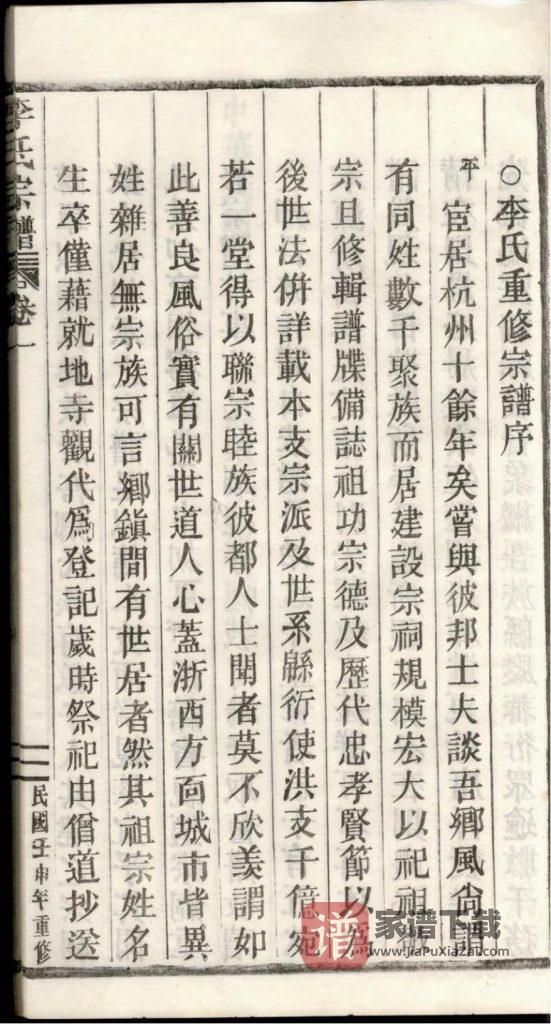 ○李氏重修宗譜序
平宦居杭州十餘年矣嘗與彼邦士夫談吾鄉風尙謂
有同姓數千聚族而居建設宗祠規模宏大以祀祖
宗且修輯譜牒備誌祖功宗德及歷代忠孝賢節以為
後世法併詳載本支宗派及世系緜衍使洪支千億宛
若一堂得以聯宗睦族彼都人士聞者莫不欣羨謂如
此善良風俗實有關世道人心蓋浙西方面城市皆異
姓雜居無宗族可言鄉鎮間有世居者然其祖宗姓名
生卒僅藉就地寺觀代為登記歲時祭祀由僧道抄送
李氏宗譜
卷一
民國壬申年重修
譜
家谱下载
www.jiaPuXiaZai.com